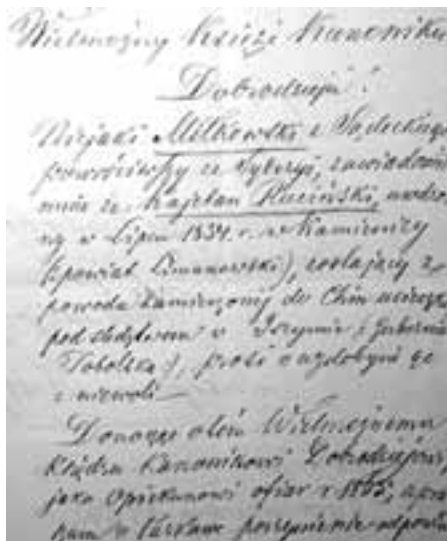 Wielmożny Księże Kanoniku
Dobrodzieju!
Niejaki Milkowski z Sądeckiego
powróciwszy ze Syberyi, zawiadomił
mnie że Kajetan Ruciński, urodzo
ny w Lipcu 1834. r. w Kamienicy
(powiat Limanowski), zostający z
powodu zamierzonej do Chin ucieczki
pod śledztwem w Iszymie (Gubernia
Tobolska), prosi o wydobycie go
z niewoli.
Donosząc o tem Wielmożnemu
Księdzu Kanonikowi Dobrodziejowi
jako Opiekunowi ofiar r 1863,